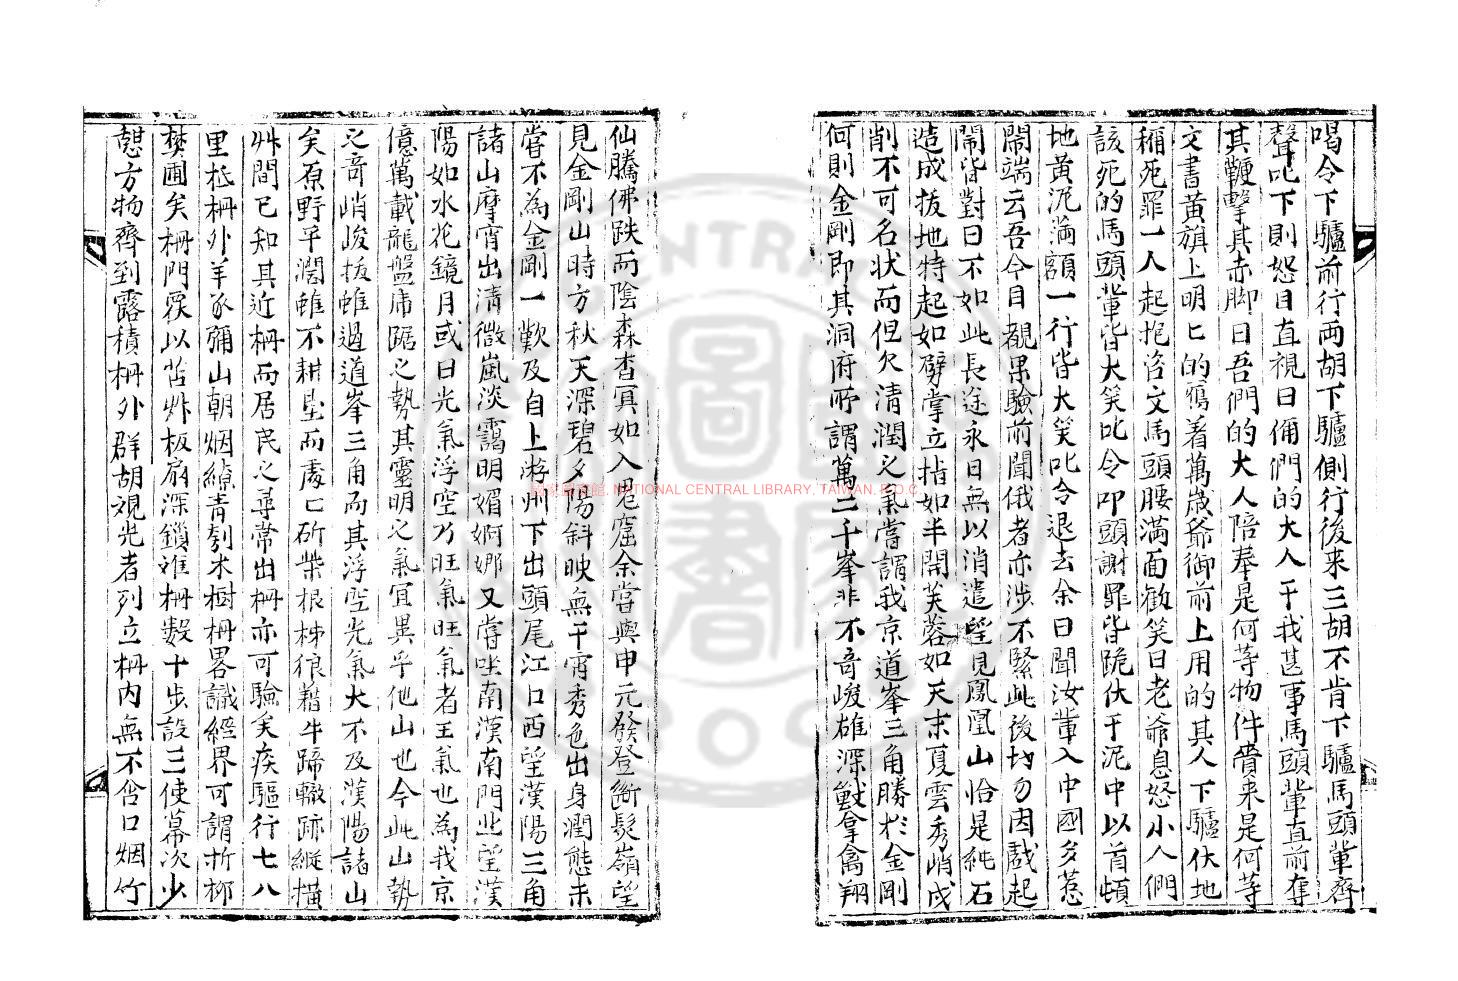 喝令下驢前行両胡下驢側行後来三胡不肯下驢馬頭軰齊
聲叱下則怒目直視曰俻們的大人干我甚事馬頭軰直前奪
其鞭擊其赤脚曰吾們的大人陪奉是何等物件賷来是何等
文書黄旗上明匕的寫着萬歲爺御前上用的其人下驢伏地
稱死罪一人起抱咨文馬頭腰滿面歡笑曰老爺息怒小人們
該死的馬頭軰皆大笑叱令叩頭謝罪皆跪伏于泥中以首頓
地黄泥滿額一行皆大笑叱令退去余曰聞汝軰入中國多惹
閙端云吾今目覩果驗前聞俄者亦涉不緊此後切勿因戱起
閙皆對曰不如此長途永日無以消遣望見鳳凰山恰是純石
造成拔地特起如擘掌立指如半開芙蓉如天末夏雲秀峭戍
削不可名狀而但欠清潤之氣嘗謂我京道峯三角勝扵金剛
何則金剛即其洞府所謂萬二千峯非不竒峻雄深獸拿禽翔
仙騰佛趺而陰森杳冥如入鬼窟余嘗與申元發登斷髮嶺望
見金剛山時方秋天深碧夕陽斜映無干霄秀色出身潤態未
嘗不為金剛一歎及自上游刋下出頭尾江口西望漢陽三角
諸山摩霄出清微嵐淡靄明媚婀娜又嘗坐南漢南門北望漢
陽如水花鏡月或曰光氣浮空乃旺氣旺氣者王氣也為我京
億萬載龍盤虎踞之勢其靈明之氣宜異乎他山也今此山勢
之竒峭峻拔雖過道峯三角而其浮空光氣大不及漢陽諸山
矣原野平濶雖不耕墾而處匕斫柴根柹狼藉牛蹄轍跡縱橫
艸間已知其近柵而居民之尋常出柵亦可驗矣疾驅行七八
里抵柵外羊豕彌山朝烟繚青刳木樹柵畧識經界可謂折柳
樊圃矣柵門覆以苫艸板扇深鎖距柵數十步設三使幕次少
憇方物齊到露積柵外群胡觀光者列立柵内無不含口烟竹
國家圖書館, NATIONAL CENTRAL LIBRARY, TAIWAN, R.O.C.